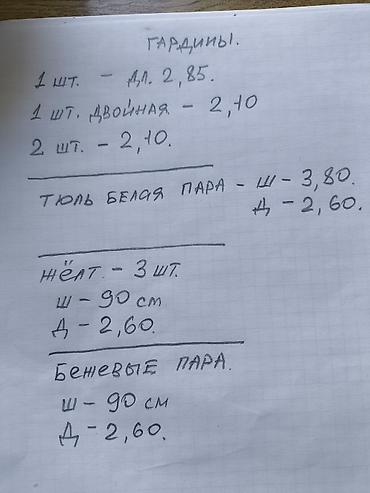 ГАРДИНЫ.
1 ШТ. - ДЛ. 2,85.
1 ШТ. ДВОЙНАЯ - 2,10
2 ШТ. - 2,10.
ТЮЛЬ БЕЛАЯ ПАРА - Ш - 3,80.
Д - 2,60.
ЖЁЛТ. - 3 ШТ.
Ш - 90 СМ
Д - 2,60.
БЕЖЕВЫЕ ПАРА.
Ш - 90 СМ
Д - 2,60.